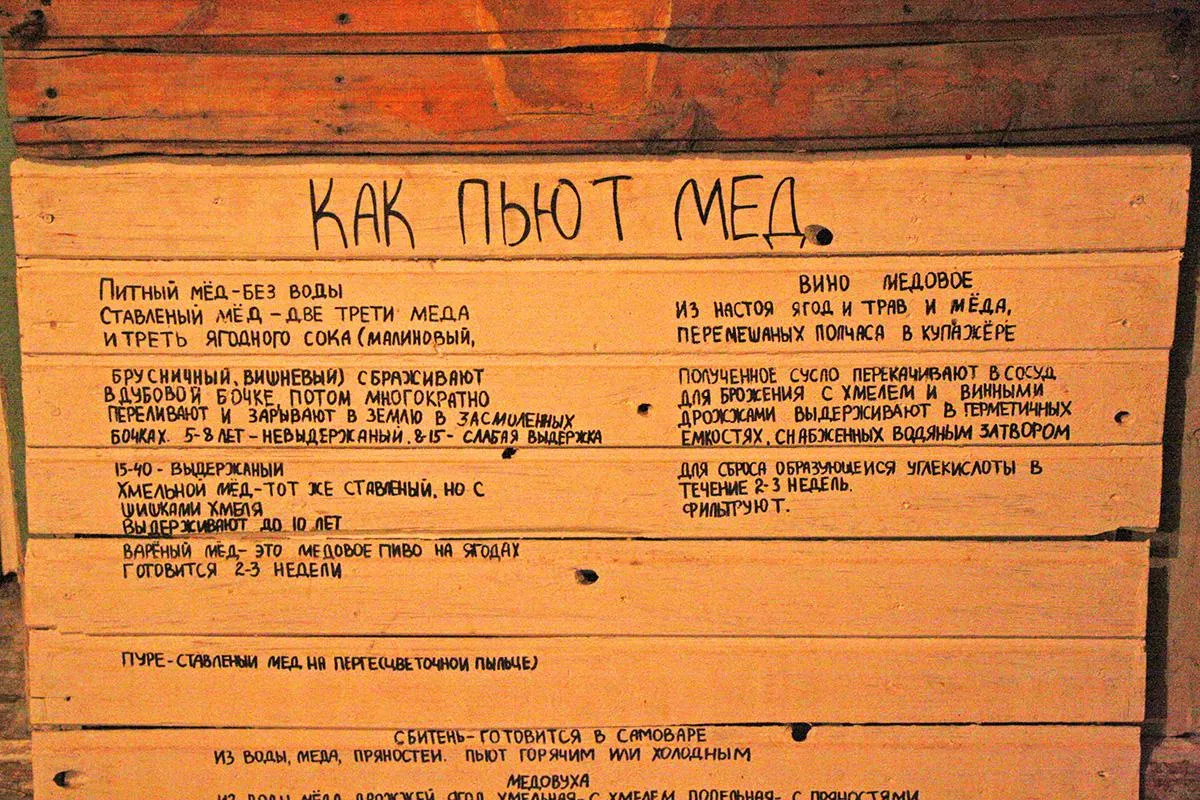 КАК ПЬЮТ МЕД.
ПИТНЫЙ МЁД-БЕЗ ВОДЫ
СТАВЛЕНЫЙ МЁД-ДВЕ ТРЕТИ МЕДА
И ТРЕТЬ ЯГОДНОГО СОКА (МАЛИНОВЫЙ,
БРУСНИЧНЫЙ, ВИШНЕВЫЙ) СБРАЖИВАЮТ
В ДУБОВОЙ БОЧКЕ, ПОТОМ МНОГОКРАТНО
ПЕРЕЛИВАЮТ И ЗАРЫВАЮТ В ЗЕМЛЮ В ЗАСМОЛЕННЫХ
БОЧКАХ. 5-8 ЛЕТ-НЕВЫДЕРЖАНЫЙ, 8-15- СЛАБАЯ ВЫДЕРЖКА
15-40- ВЫДЕРЖАНЫЙ
ХМЕЛЬНОЙ МЁД-ТОТ ЖЕ СТАВЛЕНЫЙ, НО С
ШИШКАМИ ХМЕЛЯ
ВЫДЕРЖИВАЮТ ДО 10 ЛЕТ
ВАРЁНЫЙ МЁД- ЭТО МЕДОВОЕ ПИВО НА ЯГОДАХ
ГОТОВИТСЯ 2-3 НЕДЕЛИ
ПУРЕ-СТАВЛЕНЫЙ МЕД НА ПЕРГЕ(ЦВЕТОЧНОЙ ПЫЛЬЦЕ)
ВИНО МЕДОВОЕ
ИЗ НАСТОЯ ЯГОД И ТРАВ И МЁДА,
ПЕРЕМЕШАНЫХ ПОЛЧАСА В КУПАЖЁРЕ
ПОЛУЧЕННОЕ СУСЛО ПЕРЕКАЧИВАЮТ В СОСУД
ДЛЯ БРОЖЕНИЯ С ХМЕЛЕМ И ВИННЫМИ
ДРОЖЖАМИ ВЫДЕРЖИВАЮТ В ГЕРМЕТИЧНЫХ
ЕМКОСТЯХ, СНАБЖЕННЫХ ВОДЯНЫМ ЗАТВОРОМ
ДЛЯ СБРОСА ОБРАЗУЮЩЕЙСЯ УГЛЕКИСЛОТЫ В
ТЕЧЕНИЕ 2-3 НЕДЕЛЬ.
ФИЛЬТРУЮТ.
СБИТЕНЬ-ГОТОВИТСЯ В САМОВАРЕ
ИЗ ВОДЫ, МЕДА, ПРЯНОСТЕЙ. ПЬЮТ ГОРЯЧИМ ИЛИ ХОЛОДНЫМ
МЕДОВУХА
ИЗ ВОДЫ, МЁДА, ДРОЖЖЕЙ, ЯГОД, ХМЕЛЬНАЯ- С ХМЕЛЕМ, ПОДЕЛЬНАЯ- С ПРЯНОСТЯМИ